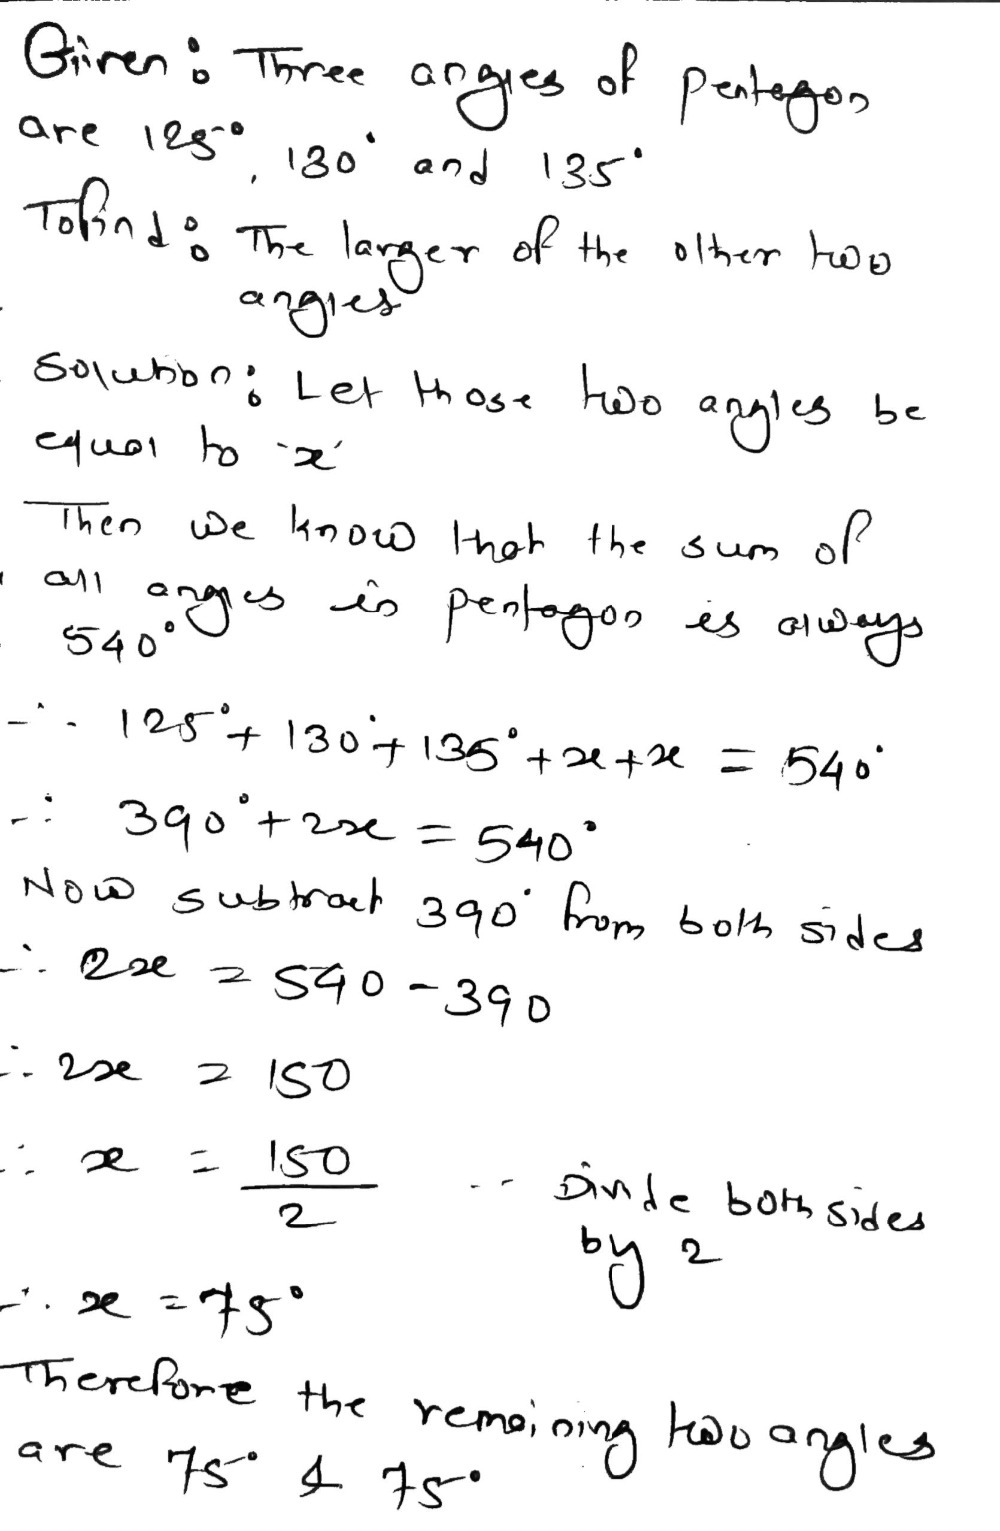 Given: Three angles of pentagon
are 125°, 130° and 135°
To find: The larger of the other two
angles
Solution: Let those two angles be
equal to 'x'
Then we know that the sum of
all angles in pentagon is always
540°
∴ 125° + 130° + 135° + x + x = 540°
∴ 390° + 2x = 540°
Now subtract 390° from both sides
∴ 2x = 540 - 390
∴ 2x = 150
∴ x = 150/2 -- Divide both sides
by 2
∴ x = 75°
Therefore the remaining two angles
are 75° & 75°